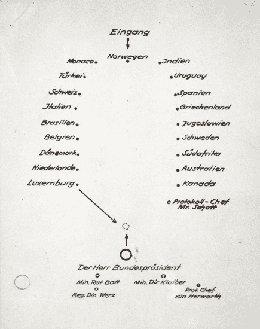 Eingang
Norwegen
Monaco Indien
Türkei Uruguay
Schweiz Spanien
Italien Griechenland
Brasilien Jugoslawien
Belgien Schweden
Dänemark Südafrika
Niederlande Australien
Luxemburg Kanada
Protokoll-Chef
Mr.
Der Herr Bundespräsident
Min. Rat Bott Min. Dir. Klaiber
Reg. Dir. Werz Prot. Chef
von Herwarth